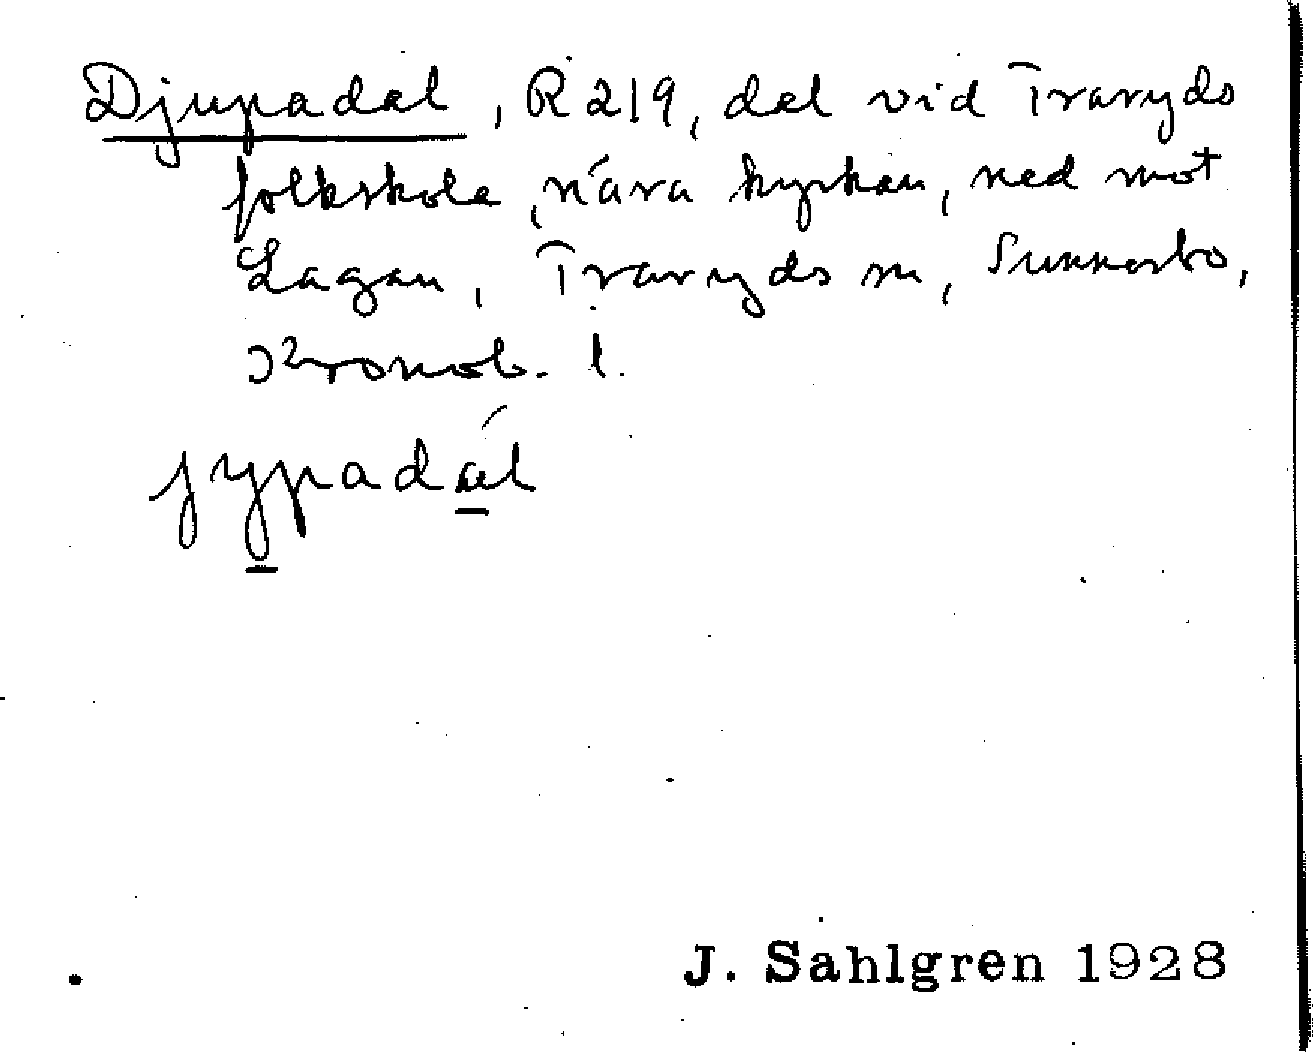 Djupadal, R 219, dal vid Traryds
folkskola, nära kyrkan, ned mot
Lagan, Traryds sn, Sunnerbo,
Kronob. l.
jypadál
J. Sahlgren 1928